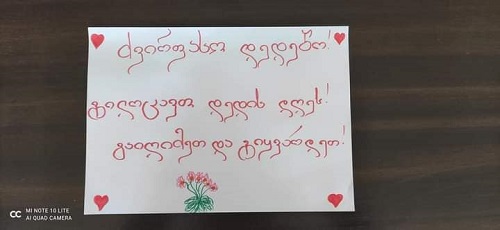 ძვირფასო დედებო!
გილოცავთ დედის დღეს!
გაიღიმეთ და გიყვარდეთ!
MI NOTE 10 LITE
AI QUAD CAMERA